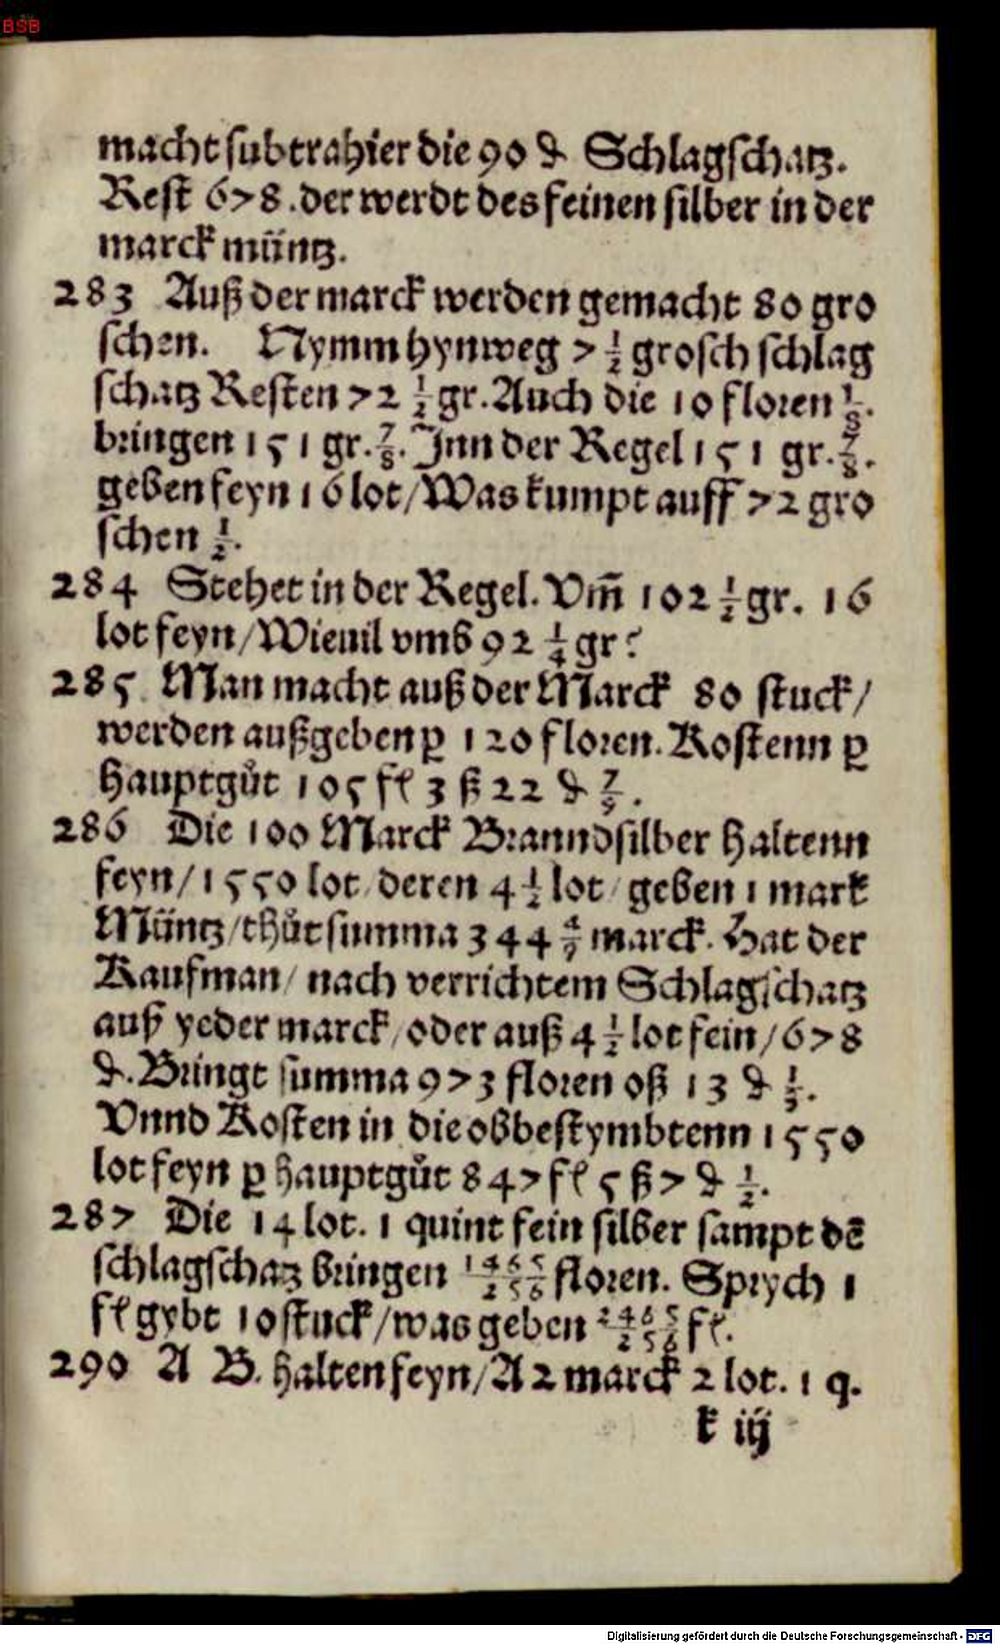 BSB
macht subtrahier die 90 ₰ Schlagschatz.
Rest 678. der werdt des feinen silber in der
marck müntz.
283 Auß der marck werden gemacht 80 gro
schen. Nymm hynweg 7 1/2 grosch schlag
schatz Resten 72 1/2 gr. Auch die 10 floren 1/8.
bringen 151 gr. 7/8. Inn der Regel 151 gr. 7/8.
geben feyn 16 lot/ Was kumpt auff 72 gro
schen 1/2.
284 Stehet in der Regel. Vm̄ 102 1/2 gr. 16
lot feyn/ Wieuil vmb 92 1/4 gr?
285 Man macht auß der Marck 80 stuck/
werden außgeben ꝑ 120 floren. Kostenn ꝑ
hauptgůt 105 fl 3 ß 22 ₰ 7/9.
286 Die 100 Marck Branndsilber haltenn
feyn/ 1550 lot/ deren 4 1/2 lot/ geben 1 mark
Müntz/ thůt summa 344 4/9 marck. Hat der
Kaufman/ nach verrichtem Schlagschatz
auß yeder marck/ oder auß 4 1/2 lot fein/ 678
₰. Bringt summa 973 floren 0ß 13 ₰ 1/3.
Vnnd Kosten in die obbestymbtenn 1550
lot feyn ꝑ hauptgůt 847 fl 5 ß 7 ₰ 1/2.
287 Die 14 lot. 1 quint fein silber sampt dē
schlagschatz bringen 1465/256 floren. Sprych 1
fl gybt 10 stuck/ was geben 2465/256 fl.
290 A B. halten feyn/ A 2 marck 2 lot. 1 q.
k iij
Digitalisierung gefördert durch die Deutsche Forschungsgemeinschaft - DFG